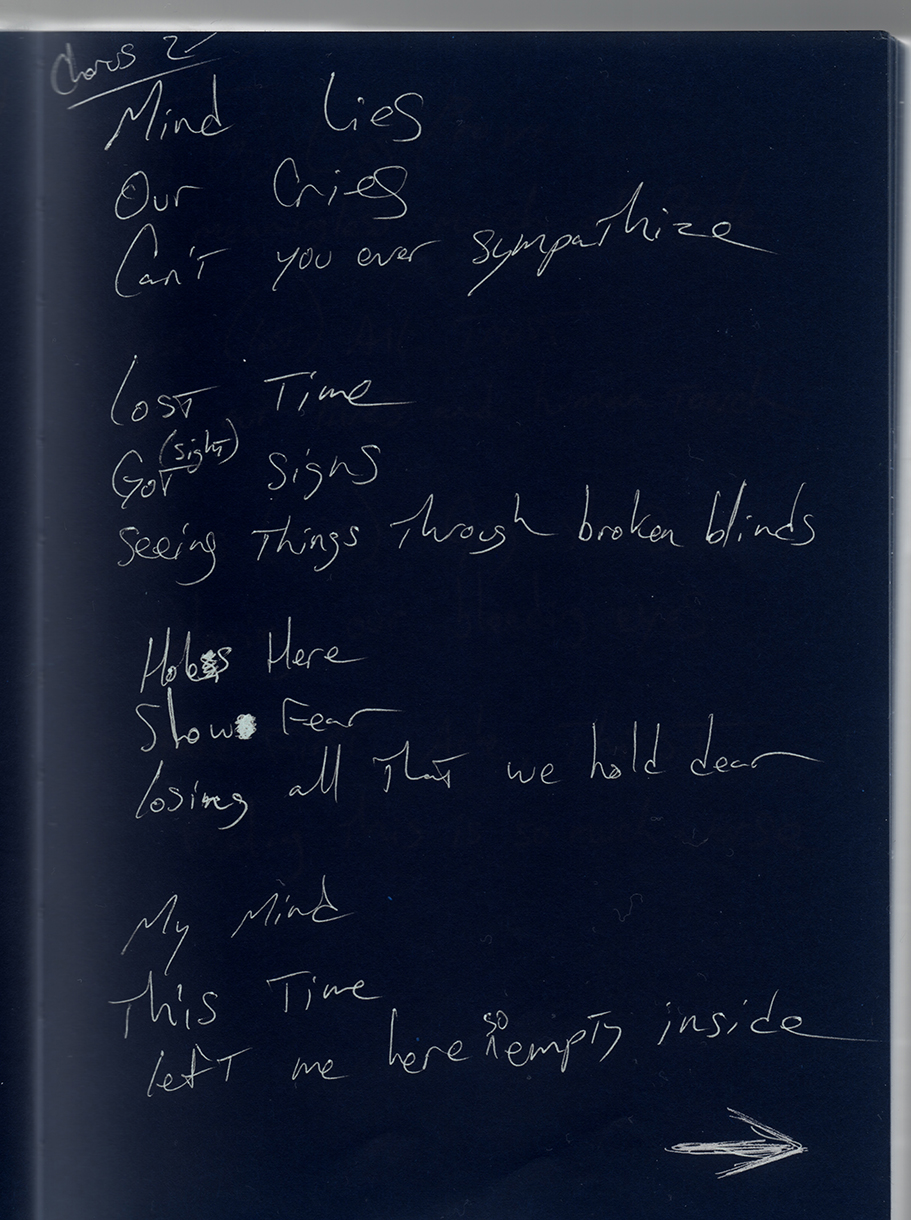 Chorus 2
Mind Lies
Our Cries
Can't you ever sympathize
Lost Time
Got (sight) signs
Seeing Things Through broken blinds
Holes Here
Show Fear
Losing all That we hold dear
My Mind
This Time
Left me here so empty inside